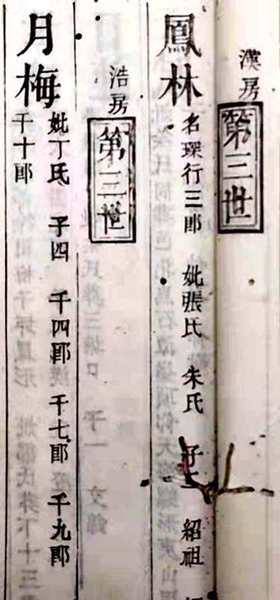 漢房
第三世
鳳林 名琛行三郎 妣張氏 朱氏 子二 紹祖
浩房
第三世
月梅 妣丁氏 子四 千四郎 千七郎 千九郎
千十郎